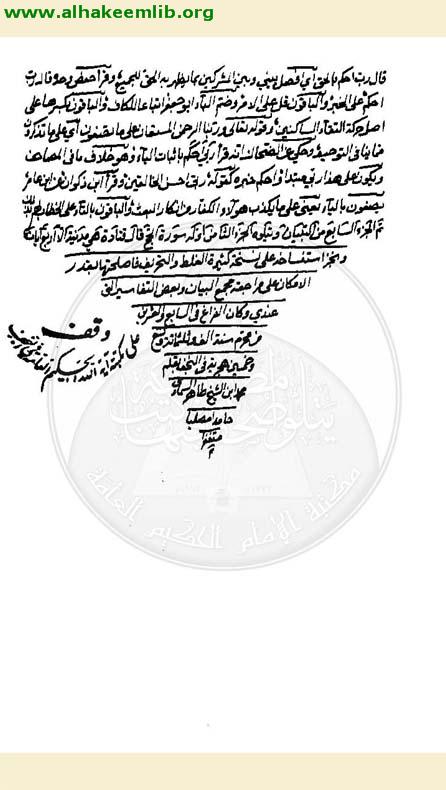 www.alhakeemlib.org
قال رب احكم بالحق اي افصل بيني وبين المشركين بما يظهر به الحق للجميع وقرأ حفص وحده قال رب
احكم على الخبر والباقون قل على الامر وضم الباء ابو جعفر اتباعا للكاف والباقون بكسرها على
اصل حركة التقاء الساكنين وقوله تعالى وربنا الرحمن المستعان على ما تصفون اي على ما تذكرون
مما ينافي التوحيد وحكي عن الضحاك انه قرأ ربي احكم باثبات الياء وهو خلاف ما في المصاحف
ويكون على هذا ربي مبتدأ واحكم خبره كقوله ربي احسن الخالقين وقرأ ابن ذكوان عن ابن عامر
يصفون بالياء يعني على ما يكذب هؤلاء الكفار من انكار البعث والباقون بالتاء على الخطاب
تم الجزء السابع من التبيان ويتلوه الجزء الثامن اوله سورة الحج قال قتادة هي مدنية الا اربع آيات
ونجز استنساخه على نسخة كثيرة الغلط والتحريف فاصلحتها بقدر
الامكان على مراجعة مجمع البيان وبعض التفاسير التي
عندي وكان الفراغ في السابع والعشرين
من محرم سنة الف وثلثمائة
وخمسين هجرية في النجف بقلم
محمد ابن الشيخ طاهر السماوي
حامدا مصليا
مستغفرا
م
وقف
على مكتبة آية الله الحكيم العامة في النجف
مكتبة الإمام الحكيم العامة